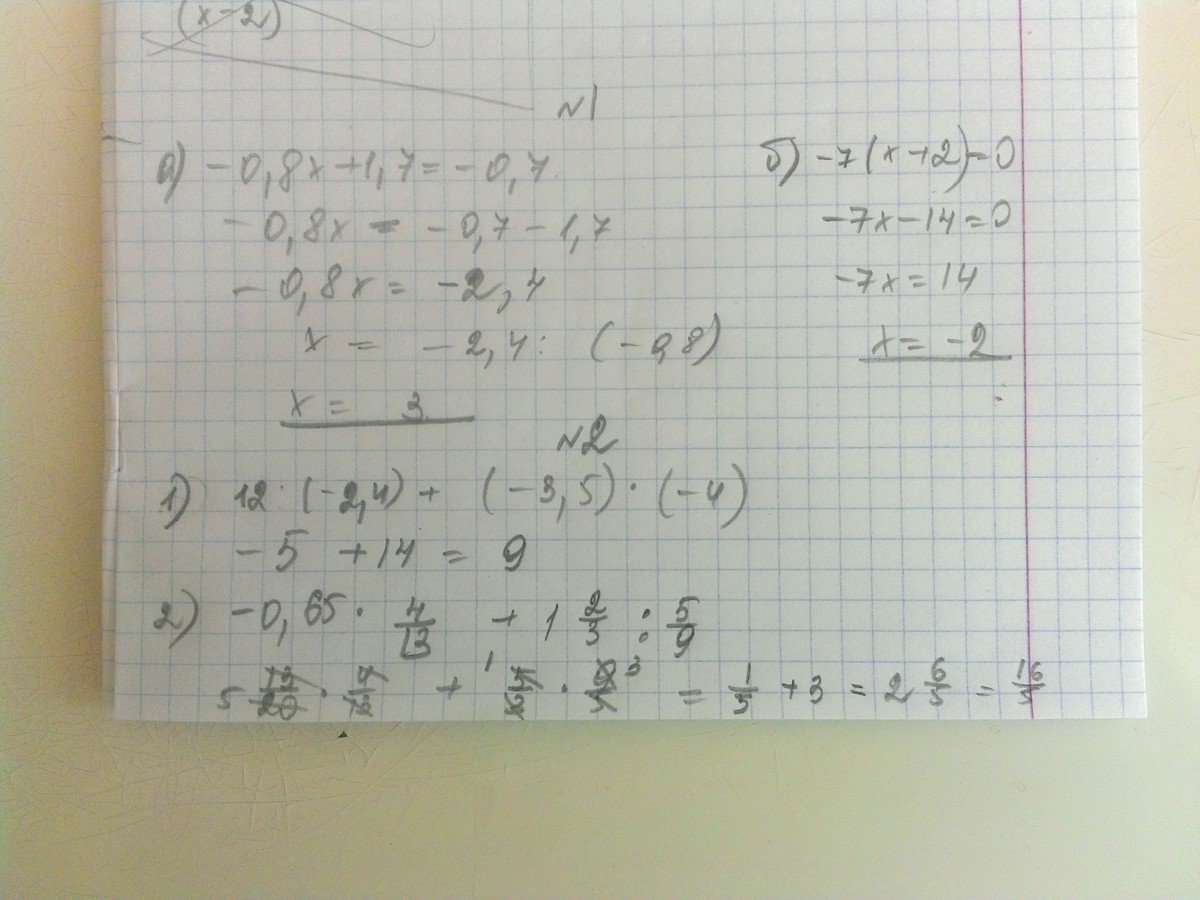 (x-2)
№1
а) -0,8x+1,7=-0,7
-0,8x = -0,7-1,7
-0,8x = -2,4
x = -2,4: (-0,8)
x = 3
б) -7(x+2)=0
-7x-14=0
-7x=14
x = -2
№2
1) 12·(-2,4)+ (-3,5)·(-4)
-5 +14 = 9
2) -0,65· 4/13 + 1 2/3 : 5/9
= 1/5 +3 = 2 6/5 = 16/5